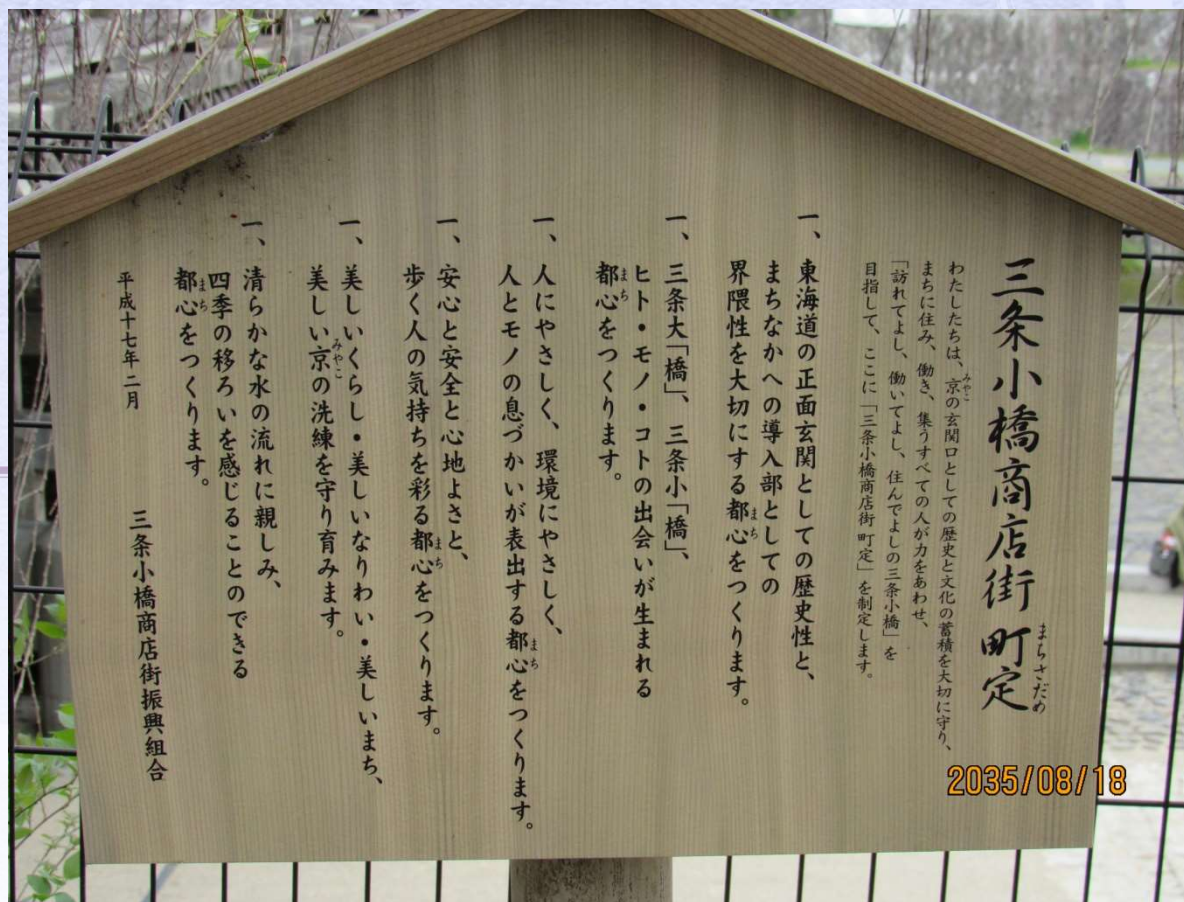 三条小橋商店街 町定
まちさだめ
わたしたちは、京の玄関口としての歴史と文化の蓄積を大切に守り、
みやこ
まちに住み、働き、集うすべての人が力をあわせ、
「訪れてよし、働いてよし、住んでよしの三条小橋」を
目指して、ここに「三条小橋商店街 町定」を制定します。
一、東海道の正面玄関としての歴史性と、
まちなかへの導入部としての
界隈性を大切にする都心をつくります。
まち
一、三条大「橋」、三条小「橋」、
ヒト・モノ・コトの出会いが生まれる
都心をつくります。
まち
一、人にやさしく、環境にやさしく、
人とモノの息づかいが表出する都心をつくります。
まち
一、安心と安全と心地よさと、
歩く人の気持ちを彩る都心をつくります。
まち
一、美しいくらし・美しいなりわい・美しいまち、
美しい京の洗練を守り育みます。
みやこ
一、清らかな水の流れに親しみ、
四季の移ろいを感じることのできる
都心をつくります。
まち
平成十七年二月
三条小橋商店街振興組合
2035/08/18